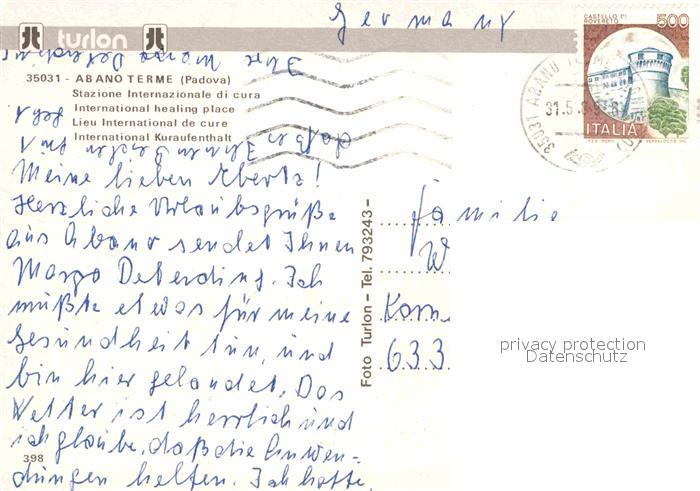 Germany
turlon
CASTELLO DI
ROVERETO
500
ITALIA
35031 ABANO TERME
31.5.8
Ihre Margo Deterding
35031 - ABANO TERME (Padova)
Stazione Internazionale di cura
International healing place
Lieu International de cure
International Kuraufenthalt
daß es Ihnen beiden gut
geht
Meine lieben Ebertz!
Herzliche Urlaubsgrüße
aus Abano sendet Ihnen
Margo Deterding. Ich
müßte etwas für meine
Gesundheit tun, und
bin hier gelandet. Das
Wetter ist herrlich und
ich glaube, daß die Anwen-
dungen helfen. Ich hoffe,
398
Foto Turlon – Tel. 793243 –
Familie
W
Kom
633
privacy protection
Datenschutz